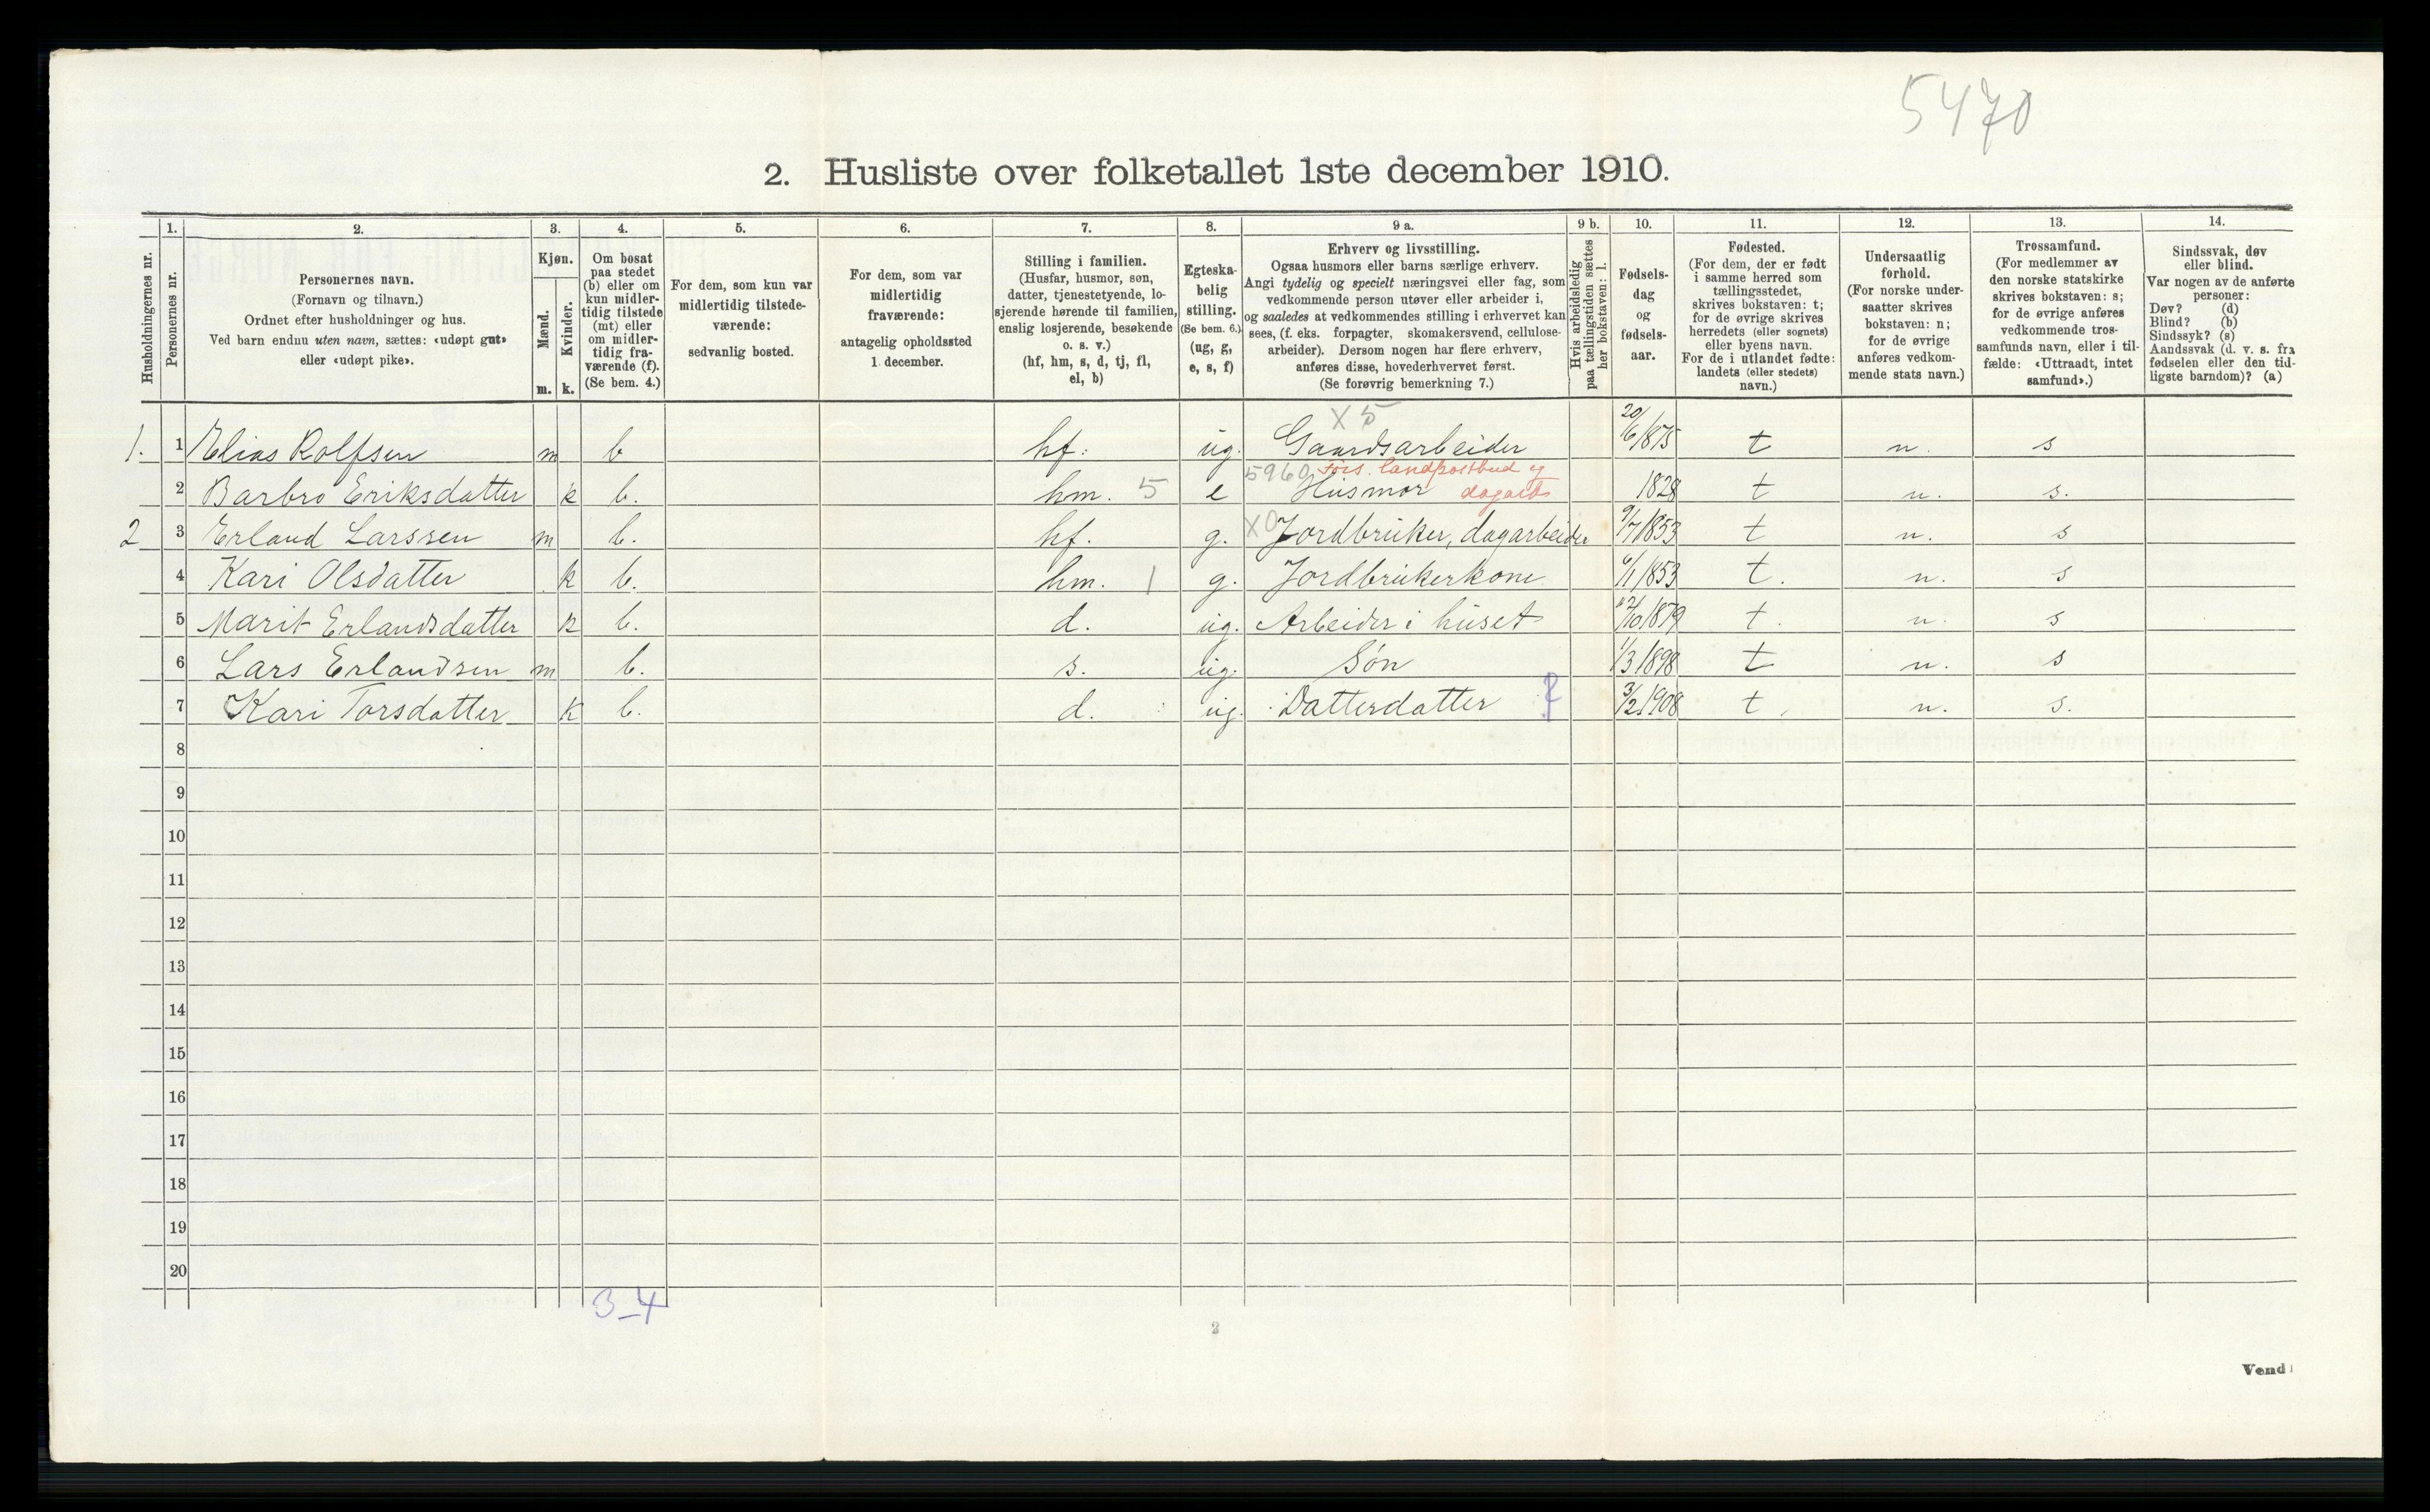 5470
2. Husliste over folketallet 1ste december 1910.
1. 2. 3. 4. 5. 6. 7. 8. 9 a. 9 b. 10. 11. 12. 13. 14.
Husholdningernes nr.
Personernes nr.
Personernes navn.
(Fornavn og tilnavn.)
Ordnet efter husholdninger og hus.
Ved barn endnu uten navn, sættes: «udøpt gut»
eller «udøpt pike».
Kjøn.
Mænd.
m.
Kvinder.
k.
Om bosat
paa stedet
(b) eller om
kun midler-
tidig tilstede
(mt) eller
om midler-
tidig fra-
værende (f).
(Se bem. 4.)
For dem, som kun var
midlertidig tilstede-
værende:
sedvanlig bosted.
For dem, som var
midlertidig
fraværende:
antagelig opholdssted
1. december.
Stilling i familien.
(Husfar, husmor, søn,
datter, tjenestetyende, lo-
sjerende hørende til familien,
enslig losjerende, besøkende
o. s. v.)
(hf, hm, s, d, tj, fl,
el, b)
Egteska-
belig
stilling.
(Se bem. 6.)
(ug, g,
e, s, f)
Erhverv og livsstilling.
Ogsaa husmors eller barns særlige erhverv.
Angi tydelig og specielt næringsvei eller fag, som
vedkommende person utøver eller arbeider i,
og saaledes at vedkommendes stilling i erhvervet kan
sees, (f. eks. forpagter, skomakersvend, cellulose-
arbeider). Dersom nogen har flere erhverv,
anføres disse, hovederhvervet først.
(Se forøvrig bemerkning 7.)
Hvis arbeidsledig
paa tællingstiden sættes
her bokstaven: l.
Fødsels-
dag
og
fødsels-
aar.
Fødested.
(For dem, der er født
i samme herred som
tællingsstedet,
skrives bokstaven: t;
for de øvrige skrives
herredets (eller sognets)
eller byens navn.
For de i utlandet fødte:
landets (eller stedets)
navn.)
Undersaatlig
forhold.
(For norske under-
saatter skrives
bokstaven: n;
for de øvrige
anføres vedkom-
mende stats navn.)
Trossamfund.
(For medlemmer av
den norske statskirke
skrives bokstaven: s;
for de øvrige anføres
vedkommende tros-
samfunds navn, eller i til-
fælde: «Uttraadt, intet
samfund».)
Sindssvak, døv
eller blind.
Var nogen av de anførte
personer:
Døv? (d)
Blind? (b)
Sindssyk? (s)
Aandssvak (d. v. s. fra
fødselen eller den tid-
ligste barndom)? (a)
X 5
1. 1 Elias Rolfsen m b hf. ug. Gaardsarbeider 20/6/875 t n. s
5960 landpostbud og
2 Barbro Eriksdatter k b. hm. 5 e Husmor dagarb 1828 t n. s.
2 3 Erland Larssen m b. hf. g. X0 Jordbruker, dagarbeider 9/7/853 t n. s
4 Kari Olsdatter k b. hm. 1 g. Jordbrukerkone 6/1/853 t. n. s
5 Marit Erlandsdatter k b. d. ug. Arbeider i huset /10/879 t. n. s
6 Lars Erlandsen m b. s. ug. Søn 1/3 1898 t n. s
7 Kari Torsdatter k b. d. ug. Datterdatter ? 3/2 1908 t. n. s.
8
9
10
11
12
13
14
15
16
17
18
19
20
3-4
2
Vend